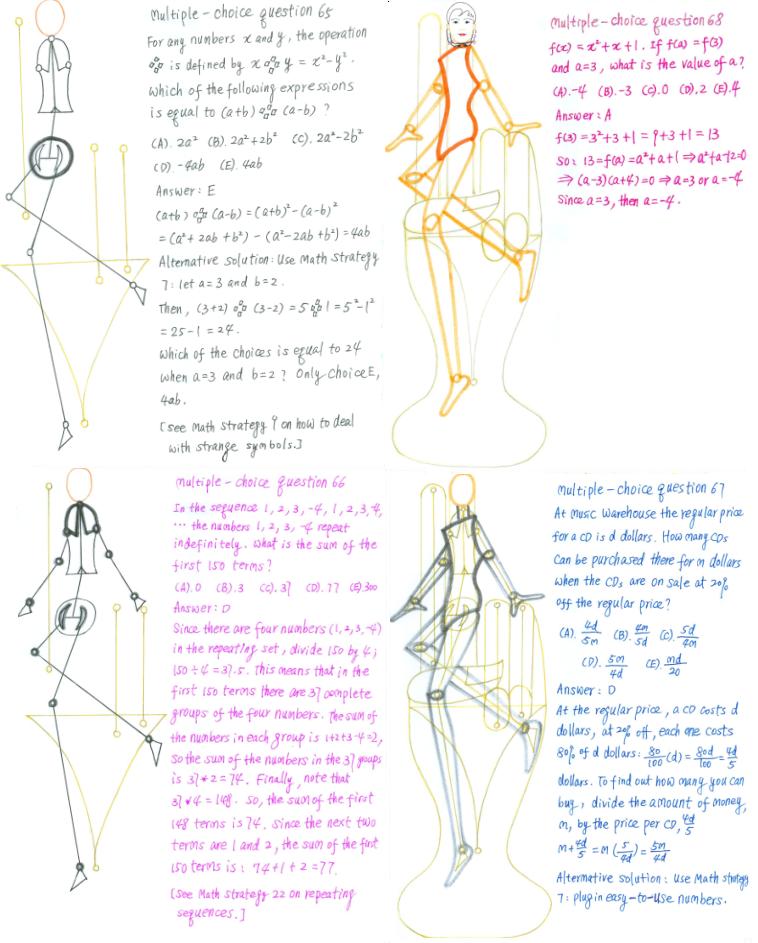 Multiple-choice question 65
For any numbers x and y, the operation
is defined by x ⁂ y = x²-y².
Which of the following expressions
is equal to (a+b) ⁂ (a-b) ?
(A). 2a² (B). 2a²+2b² (C). 2a²-2b²
(D). -4ab (E). 4ab
Answer: E
(a+b) ⁂ (a-b) = (a+b)²-(a-b)²
= (a²+2ab+b²) - (a²-2ab+b²) = 4ab
Alternative solution: Use Math Strategy
7: let a=3 and b=2.
Then, (3+2) ⁂ (3-2) = 5 ⁂ 1 = 5²-1²
= 25-1 = 24.
Which of the choices is equal to 24
when a=3 and b=2? Only Choice E,
4ab.
[see Math strategy 9 on how to deal
with strange symbols.]
Multiple-choice question 68
f(x) = x²+x+1. If f(a) = f(3)
and a=3, what is the value of a?
(A).-4 (B).-3 (C).0 (D).2 (E).4
Answer: A
f(3)=3²+3+1=9+3+1=13
So: 13=f(a)=a²+a+1 ⇒ a²+a-12=0
⇒ (a-3)(a+4)=0 ⇒ a=3 or a=-4
Since a=3, then a=-4.
Multiple-choice question 66
In the sequence 1, 2, 3, -4, 1, 2, 3, -4,
... the numbers 1, 2, 3, -4 repeat
indefinitely. What is the sum of the
first 150 terms?
(A).0 (B).3 (C).37 (D).77 (E).300
Answer: D
Since there are four numbers (1,2,3,-4)
in the repeating set, divide 150 by 4;
150÷4=37.5. This means that in the
first 150 terms there are 37 complete
groups of the four numbers. The sum of
the numbers in each group is 1+2+3-4=2,
so the sum of the numbers in the 37 groups
is 37*2=74. Finally, note that
37*4=148. So, the sum of the first
148 terms is 74. Since the next two
terms are 1 and 2, the sum of the first
150 terms is: 74+1+2=77.
[see Math strategy 22 on repeating
sequences.]
Multiple-choice question 67
At music warehouse the regular price
for a CD is d dollars. How many CDs
can be purchased there for m dollars
when the CDs are on sale at 20%
off the regular price?
(A). 4d/5m (B). 4m/5d (C). 5d/4m
(D). 5m/4d (E). md/20
Answer: D
At the regular price, a CD costs d
dollars, at 20% off, each one costs
80% of d dollars: 80/100(d) = 80d/100 = 4d/5
dollars. To find out how many you can
buy, divide the amount of money,
m, by the price per CD, 4d/5
m÷4d/5 = m(5/4d) = 5m/4d
Alternative solution: Use Math strategy
7: plug in easy-to-use numbers.